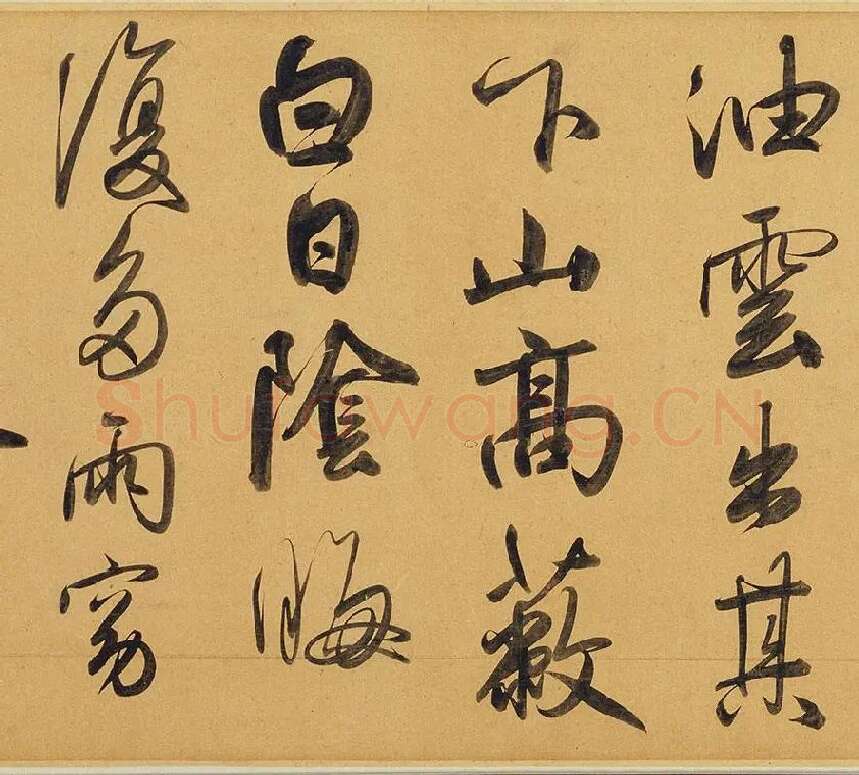 油雲出其
下山高蔽
白日陰晦
復多雨窈
Shufawang.CN